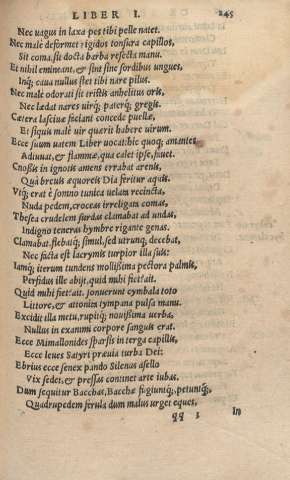 LIBER I. 245
Nec vagus in laxa pes tibi pelle natet.
Nec malè deformet rigidos tonsura capillos,
Sit coma, sit docta barba resecta manu.
Et nihil emineant, & sint sine sordibus ungues,
Inq; caua nullus stet tibi nare pilus.
Nec malè odorati sit tristis anhelitus oris,
Nec lædat nares uirq; paterq; gregis.
Cætera lasciuæ faciant concede puellæ,
Et siquis malè uir quærit habere uirum.
Ecce suum uatem Liber uocat: hic quoq; amantes
Adiuuat, & flammæ, qua calet ipse, fauet.
Cnosis in ignotis amens errabat arenis,
Quà breuis æquoreis Dia feritur aquis.
Vtq; erat è somno tunica uelata recincta,
Nuda pedem, croceas irreligata comas,
Thesea crudelem surdas clamabat ad undas,
Indigno teneras hymbre rigante genas.
Clamabat, flebatq; simul, sed utrunq; decebat,
Nec facta est lacrymis turpior illa suis.
Iamq; iterum tundens mollissima pectora palmis,
Perfidus ille abijt, quid mihi fiet? ait.
Quid mihi fiet? ait. sonuerunt cymbala toto
Littore, & attonita tympana pulsa manu.
Excidit illa metu, rupitq; nouissima uerba,
Nullus in exanimi corpore sanguis erat.
Ecce Mimallonides sparsis in terga capillis,
Ecce leues Satyri præuia turba Dei:
Ebrius ecce senex pando Silenus asello
Vix sedet, & pressas continet arte iubas.
Dum sequitur Bacchas, Bacchæ fugiuntq;, petuntq;,
Quadrupedem ferula dum malus urget eques,
qq 3 In